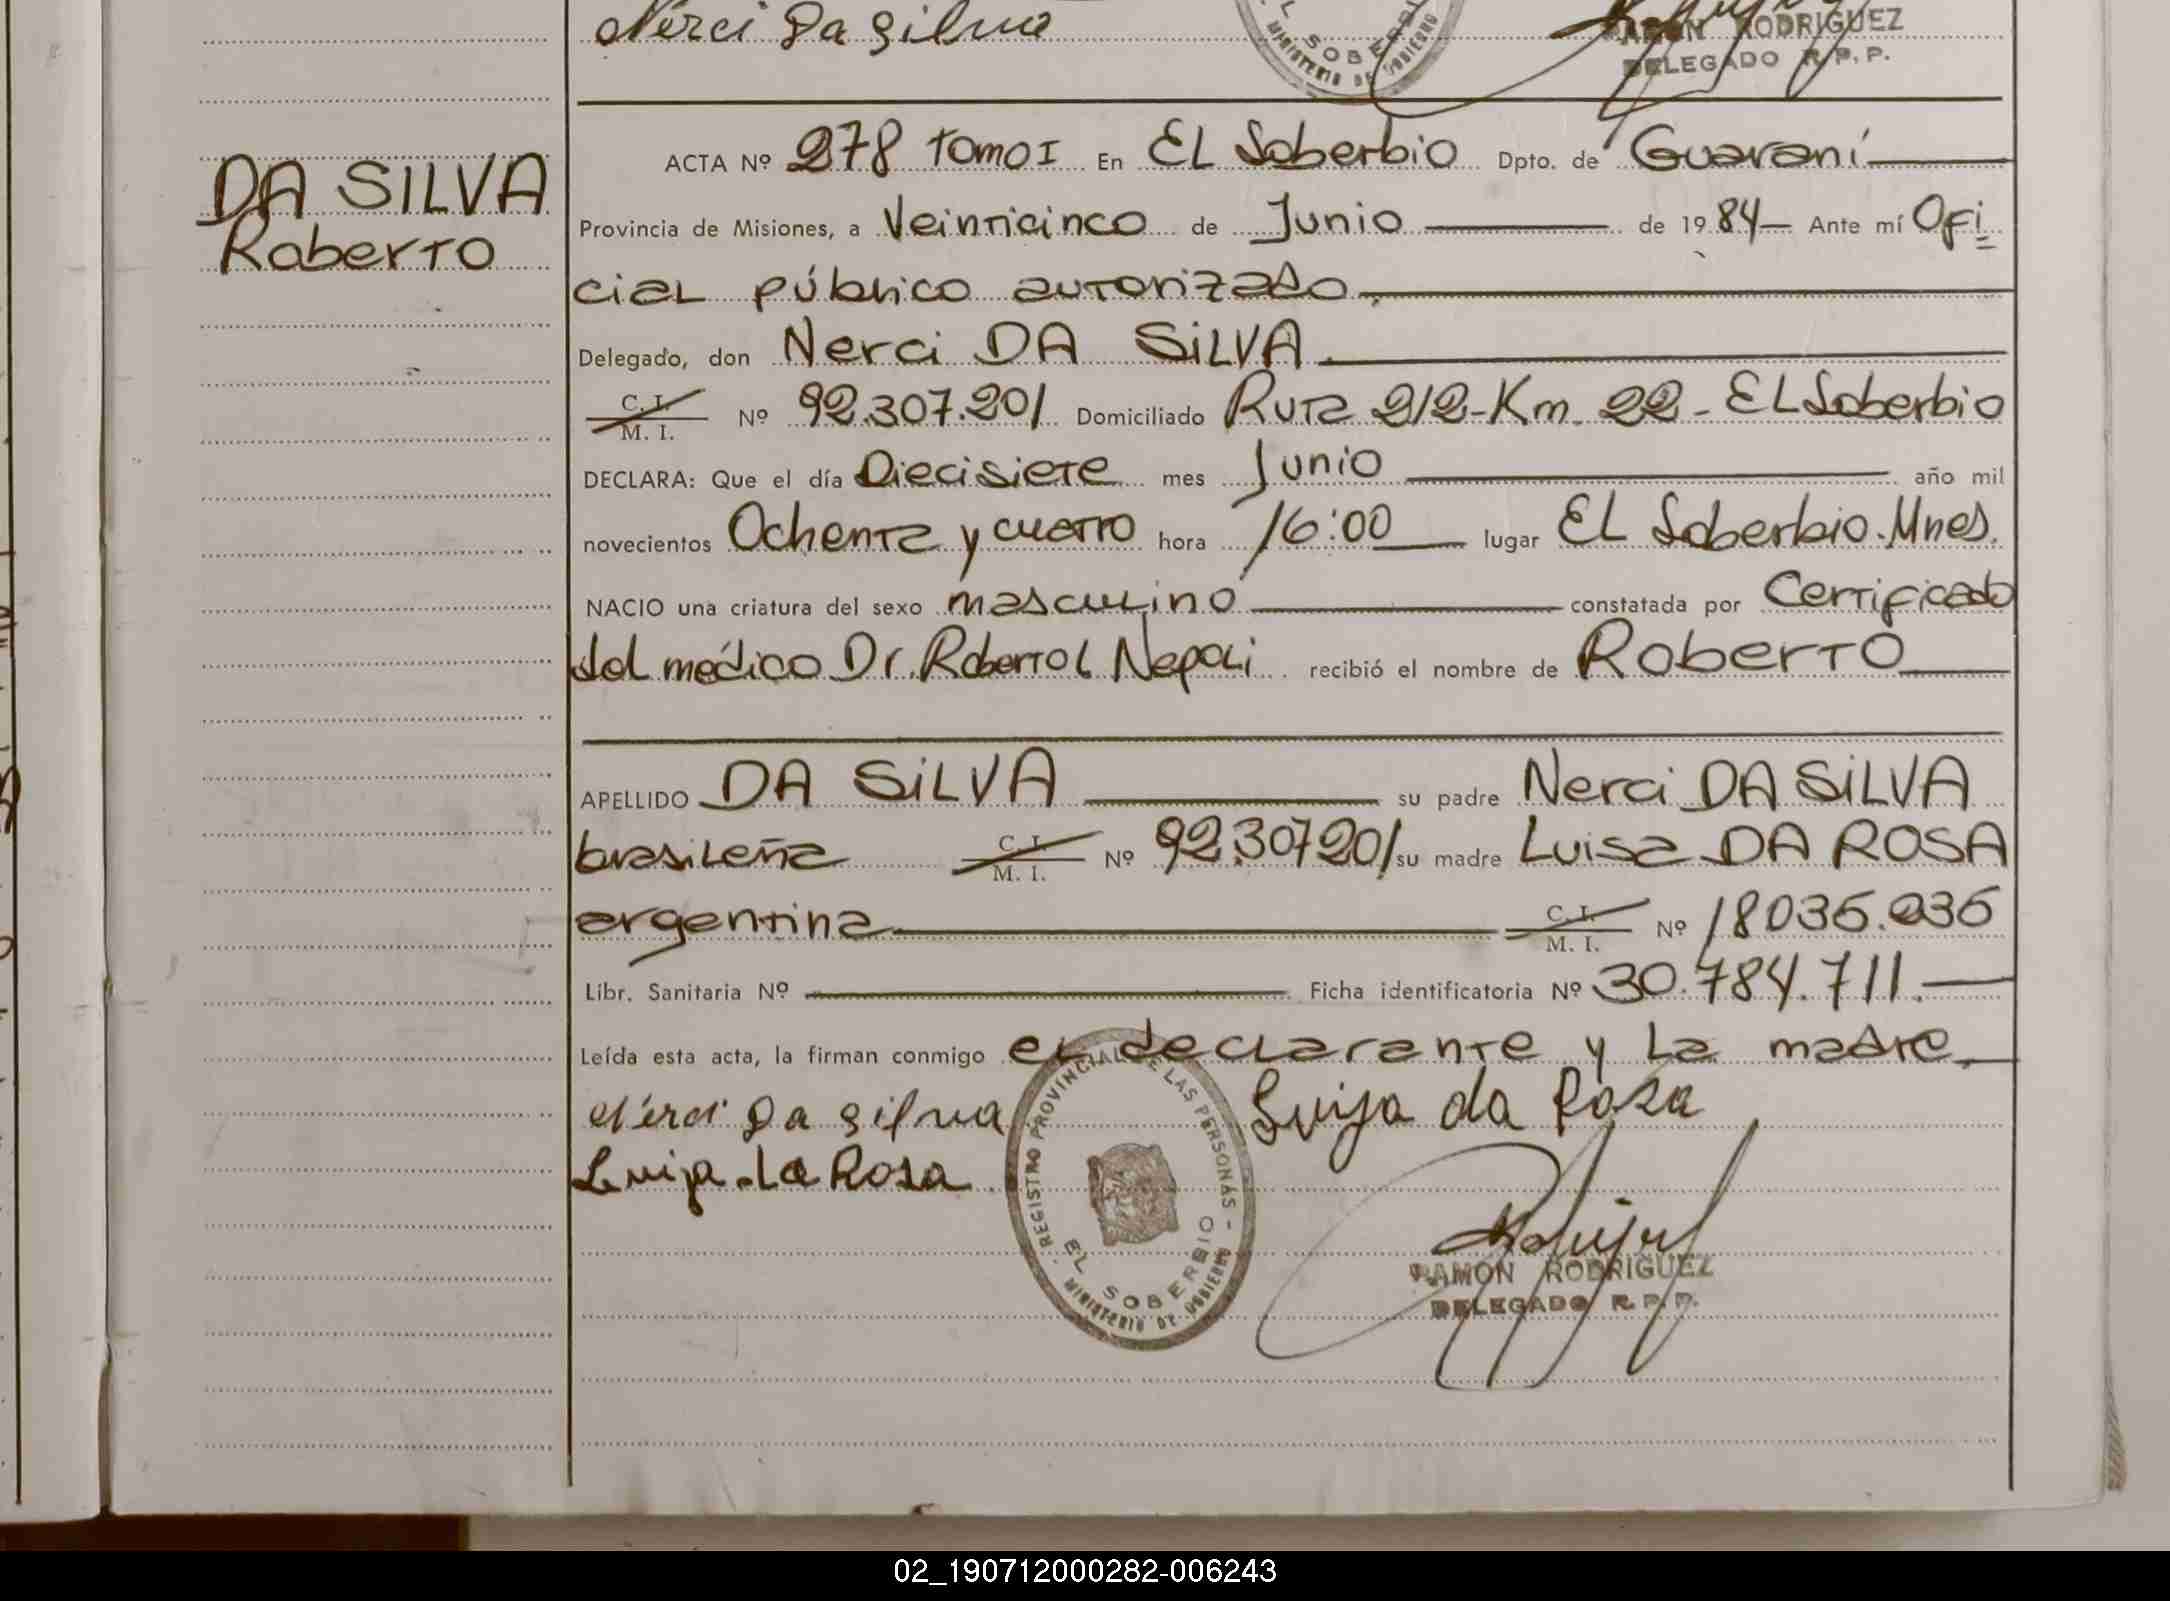 Nerci Da Silva
EL SOBERBIO
MINISTERIO DE GOBIERNO
RAMON RODRIGUEZ
DELEGADO R.P.P.
DA SILVA
Roberto
ACTA Nº 278 Tomo I En EL Soberbio Dpto. de Guaraní
Provincia de Misiones, a Veinticinco de Junio de 1984 Ante mí Ofi
cial público autorizado.
Delegado, don Nerci DA SILVA
C. I.
M. I. Nº 92.307.201 Domiciliado Ruta 212-Km. 22 - EL Soberbio
DECLARA: Que el día Diecisiete mes Junio año mil
novecientos Ochenta y cuatro hora 16:00 lugar EL Soberbio. Mnes.
NACIO una criatura del sexo masculino constatada por Certificado
del médico Dr. Roberto L Napoli recibió el nombre de Roberto
APELLIDO DA SILVA su padre Nerci DA SILVA
brasileña C. I. M. I. Nº 92.307201 su madre Luisa DA ROSA
argentina C. I. M. I. Nº 18036.036
Libr. Sanitaria Nº Ficha identificatoria Nº 30.784.711.
Leída esta acta, la firman conmigo el declarante y la madre.
Nerci Da Silva Luija da Rosa
Luija da Rosa
REGISTRO PROVINCIAL DE LAS PERSONAS
EL SOBERBIO
MINISTERIO DE GOBIERNO
RAMON RODRIGUEZ
DELEGADO R.P.P.
02_190712000282-006243